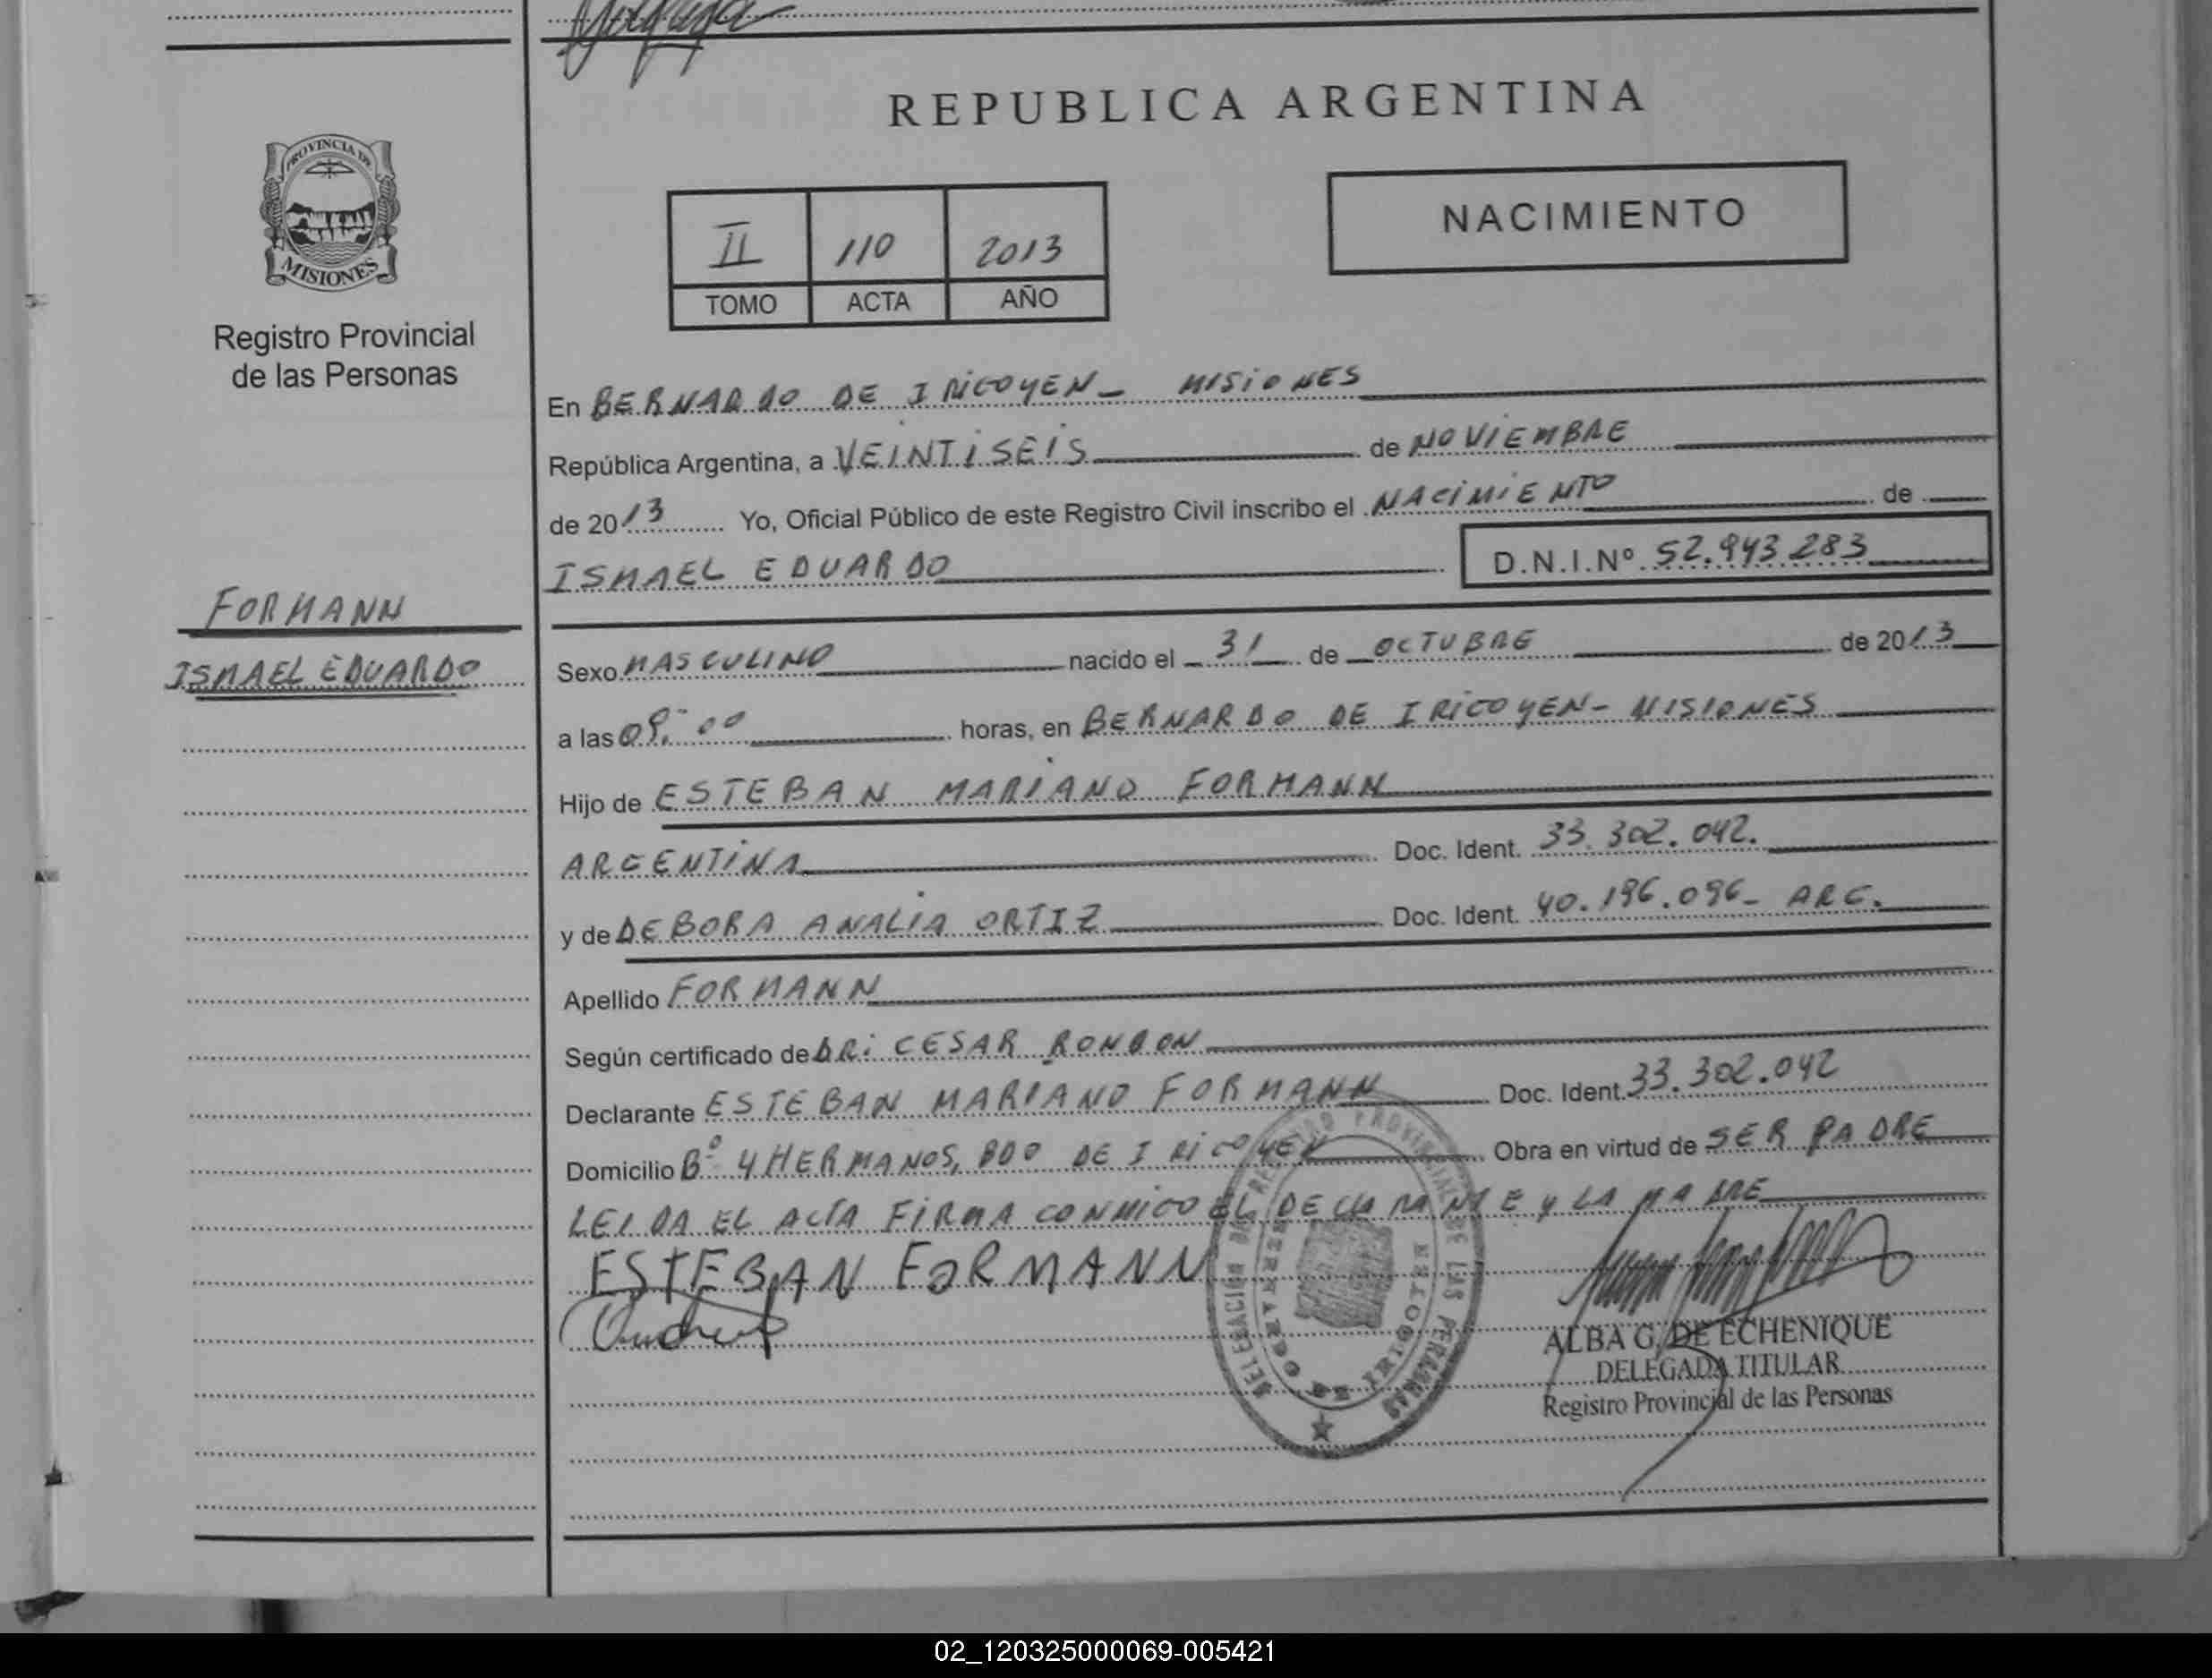 REPUBLICA ARGENTINA
PROVINCIA DE
MISIONES
Registro Provincial
de las Personas
NACIMIENTO
II 110 2013
TOMO ACTA AÑO
En BERNARDO DE IRIGOYEN - MISIONES
República Argentina, a VEINTISEIS de NOVIEMBRE
de 2013 Yo, Oficial Público de este Registro Civil inscribo el NACIMIENTO de
ISMAEL EDUARDO D.N.I.Nº 52.943.283
FORMANN
ISMAEL EDUARDO
Sexo MASCULINO nacido el 31 de OCTUBRE de 2013
a las 09:00 horas, en BERNARDO DE IRIGOYEN - MISIONES
Hijo de ESTEBAN MARIANO FORMANN
ARGENTINA Doc. Ident. 33.302.042.
y de DEBORA ANALIA ORTIZ Doc. Ident. 40.196.096 - ARG.
Apellido FORMANN
Según certificado de DR: CESAR RONDON
Declarante ESTEBAN MARIANO FORMANN Doc. Ident. 33.302.042
Domicilio Bº 4 HERMANOS, BDO DE IRIGOYEN Obra en virtud de SER PADRE
LEIDA EL ACTA FIRMA CONMIGO EL DECLARANTE Y LA MADRE
ESTEBAN FORMANN
ALBA G. DE ECHENIQUE
DELEGADA TITULAR
Registro Provincial de las Personas
DELEGACIÓN DEL REGISTRO PROVINCIAL DE LAS PERSONAS
BERNARDO DE IRIGOYEN
02_120325000069-005421